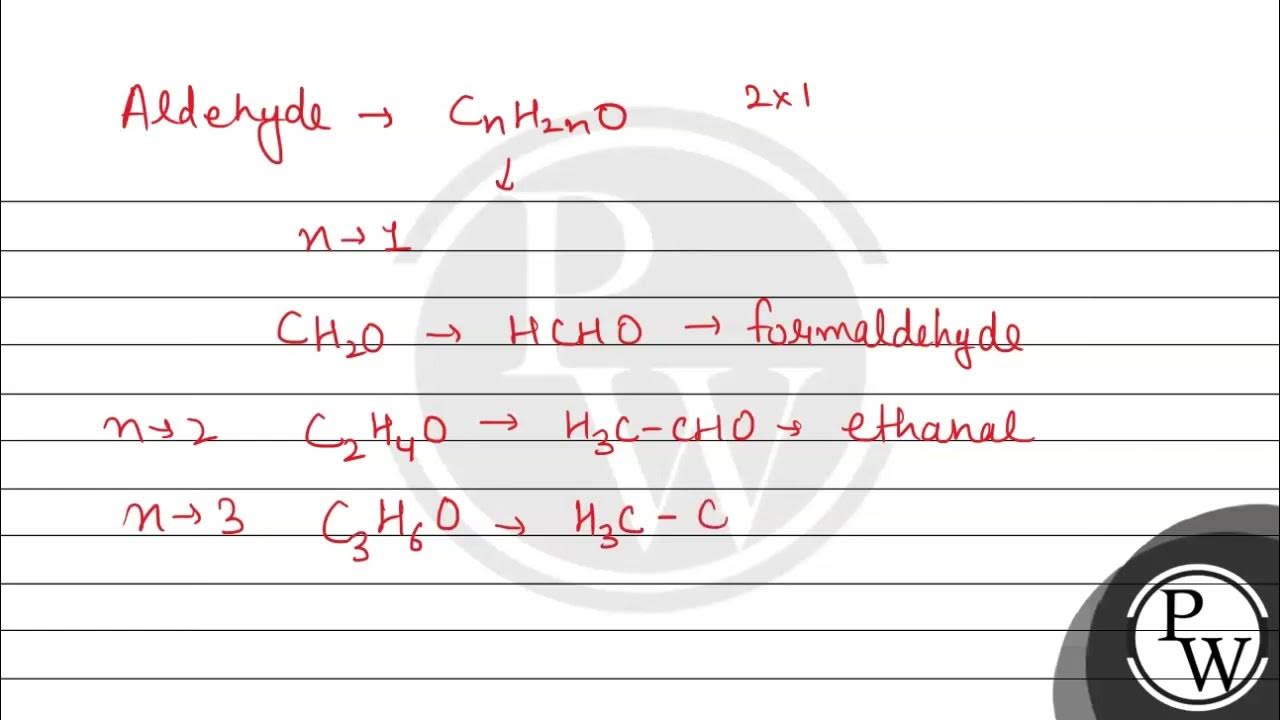 Aldehyde → CnH2nO 2×1
↓
n → 1
CH2O → HCHO → formaldehyde
n → 2 C2H4O → H3C-CHO → ethanal
n → 3 C3H6O → H3C - C
PW
PW